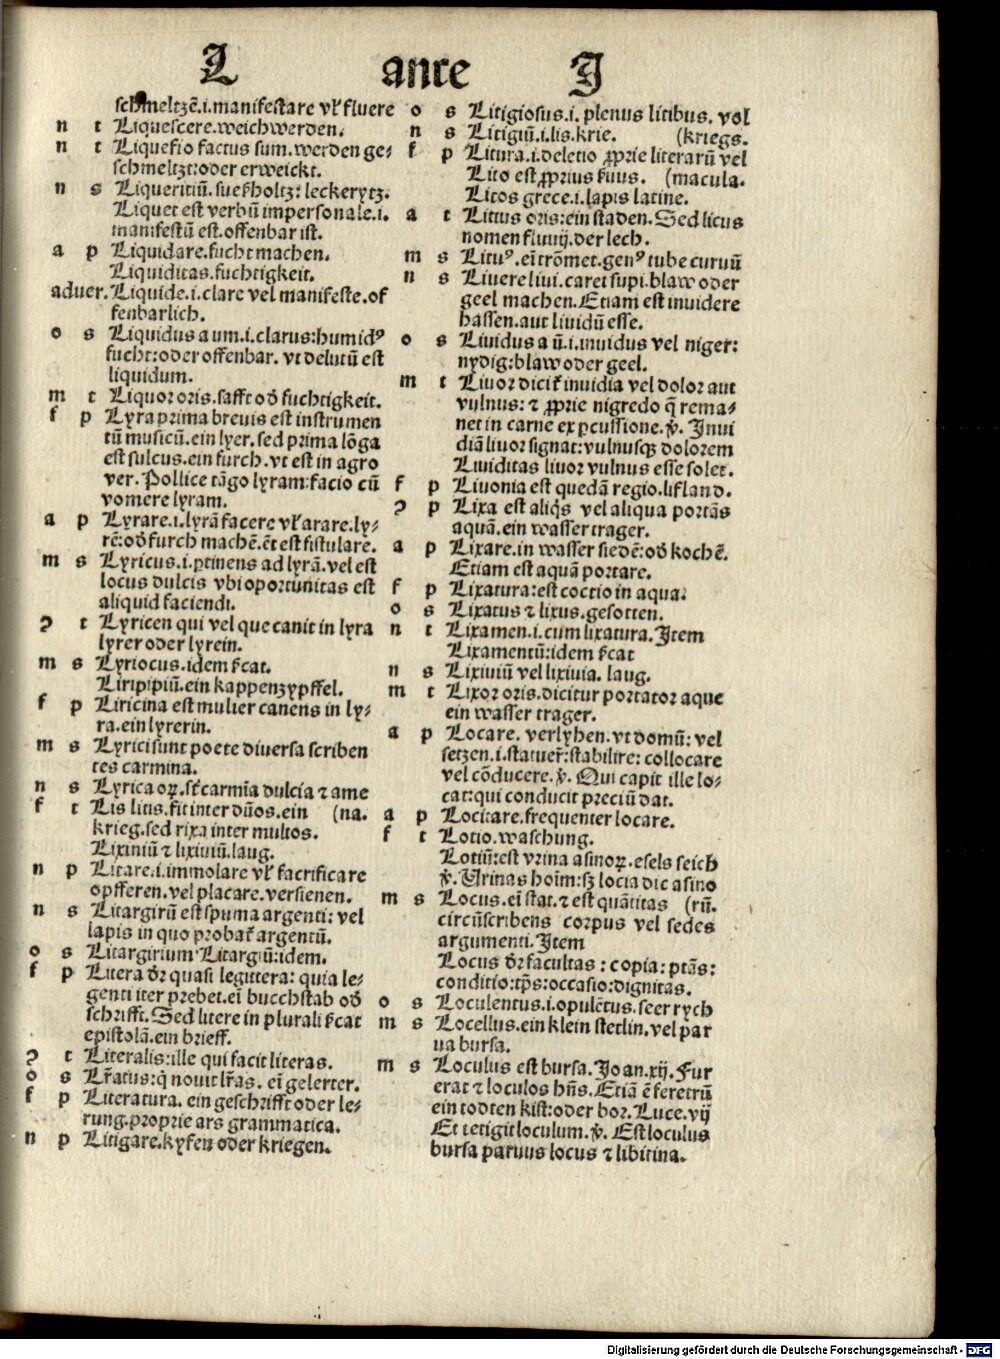 L ante J
schmeltzē.i.manifestare vl̕ fluere
n t Liquescere.weich werden.
n t Liquefio factus sum.werden ge⸗
schmeltzt:oder erweickt.
n s Liqueritiū.sueßholtz: leckerytz.
Liquet est verbū impersonale.i.
manifestū est.offenbar ist.
a p Liquidare.fucht machen.
Liquiditas.fuchtigkeit.
aduer.Liquide.i.clare vel manifeste.of
fenbarlich.
o s Liquidus a um.i.clarus:humidꝰ
fucht:oder offenbar. vt delutū est
liquidum.
m t Liquor oris.safft od̕ fuchtigkeit.
f p Lyra prima breuis est instrumen
tū musicū.ein lyer.sed prima lōga
est sulcus.ein furch.vt est in agro
ver.Pollice tāgo lyram:facio cū
vomere lyram.
a p Lyrare.i.lyrā facere vl̕ arare.ly⸗
rē:od̕ furch machē.ēt est fistulare.
m s Lyricus.i.ptinens ad lyrā.vel est
locus dulcis vbi oportunitas est
aliquid faciendi.
? t Lyricen qui vel que canit in lyra
lyrer oder lyrein.
m s Lyriocus.idem scat.
Liripipiū.ein kappenzypffel.
f p Liricina est mulier canens in ly⸗
ra.ein lyrerin.
m s Lyrici sunt poete diuersa scriben
tes carmina.
n s Lyrica oꝝ.st̕ carmīa dulcia ⁊ ame
f t Lis litis.fit inter duos.ein (na.
krieg.sed rixa inter multos.
Lixiniū ⁊ lixiuiū.laug.
n p Litare.i.immolare vl̕ sacrificare
opfferen.vel placare.versienen.
n s Litargirū est spuma argenti: vel
lapis in quo probat̕ argentū.
o s Litargirium Litargiū:idem.
f p Litera dr̄ quasi legittera: quia le⸗
genti iter prebet.eī buchstab od̕
schrifft.Sed litere in plurali scat
epistolā.ein brieff.
? t Literalis:ille qui facit literas.
o s Lr̄atus:q̇ nouit lr̄as. eī gelerter.
f p Literatura. ein geschrifft oder le⸗
rung.proprie ars grammatica.
n p Litigare.kyfen oder kriegen.
o s Litigiosus.i. plenus litibus. vol
n s Litigiū.i.lis.krie. (kriegs.
f p Litura.i.deletio ꝓprie literarū vel
Lito est ꝓprius s̕uus. (macula.
Litos grece.i.lapis latine.
a t Litius oris:ein staden.Sed licus
nomen fluuij.der lech.
m s Lituꝰ.eī trōmet.genꝰ tube curuū
n s Liuere liui.caret supi.blaw oder
geel machen.Etiam est inuidere
hassen.aut liuidū esse.
o s Liuidus a ū.i.inuidus vel niger:
nydig:blaw oder geel.
m t Liuor dicit̕ inuidia vel dolor aut
vulnus: ⁊ ꝓprie nigredo q̄ rema⸗
net in carne ex ꝑcussione.v̕. Inui
diā liuor signat:vulnusqꝫ dolorem
Liuiditas liuor vulnus esse solet.
f p Liuonia est quedā regio.lifland.
? p Lixa est aliq̇s vel aliqua portās
aquā.ein wasser trager.
a p Lixare.in wasser siedē:od̕ kochē.
Etiam est aquā portare.
f p Lixatura:est coctio in aqua.
o s Lixatus ⁊ lixus.gesotten.
n t Lixamen.i.cum lixatura.Item
Lixamentū:idem scat
n s Lixiuiū vel lixiuia. laug.
m t Lixor oris.dicitur portator aque
ein wasser trager.
a p Locare. verlyhen.vt domū: vel
setzen.i.statuer̄:stabilire: collocare
vel cōducere.v̕. Qui capit ille lo⸗
cat:qui conducit preciū dat.
a p Locitare.frequenter locare.
f t Lotio.waschung.
Lotiū:est vrina asinoꝝ.esels seich
v̕.Urinas hoīm:sꝫ locia dic asino
m s Locus.eī stat.⁊ est quātitas (rū.
circūscribens corpus vel sedes
argumenti.Item
Locus dr̄ facultas : copia: ptās:
conditio:tp̄s:occasio:dignitas.
o s Loculentus.i.opulētus.seer rych
m s Locellus.ein klein stetlin.vel par
ua bursa.
m s Loculus est bursa.Joan.xij.Fur
erat ⁊ loculos hn̄s.Etiā ē feretrū
ein todten kist:oder bor.Luce.vij
Et tetigit loculum.v̕. Est loculus
bursa paruus locus ⁊ libitina.
Digitalisierung gefördert durch die Deutsche Forschungsgemeinschaft - DFG